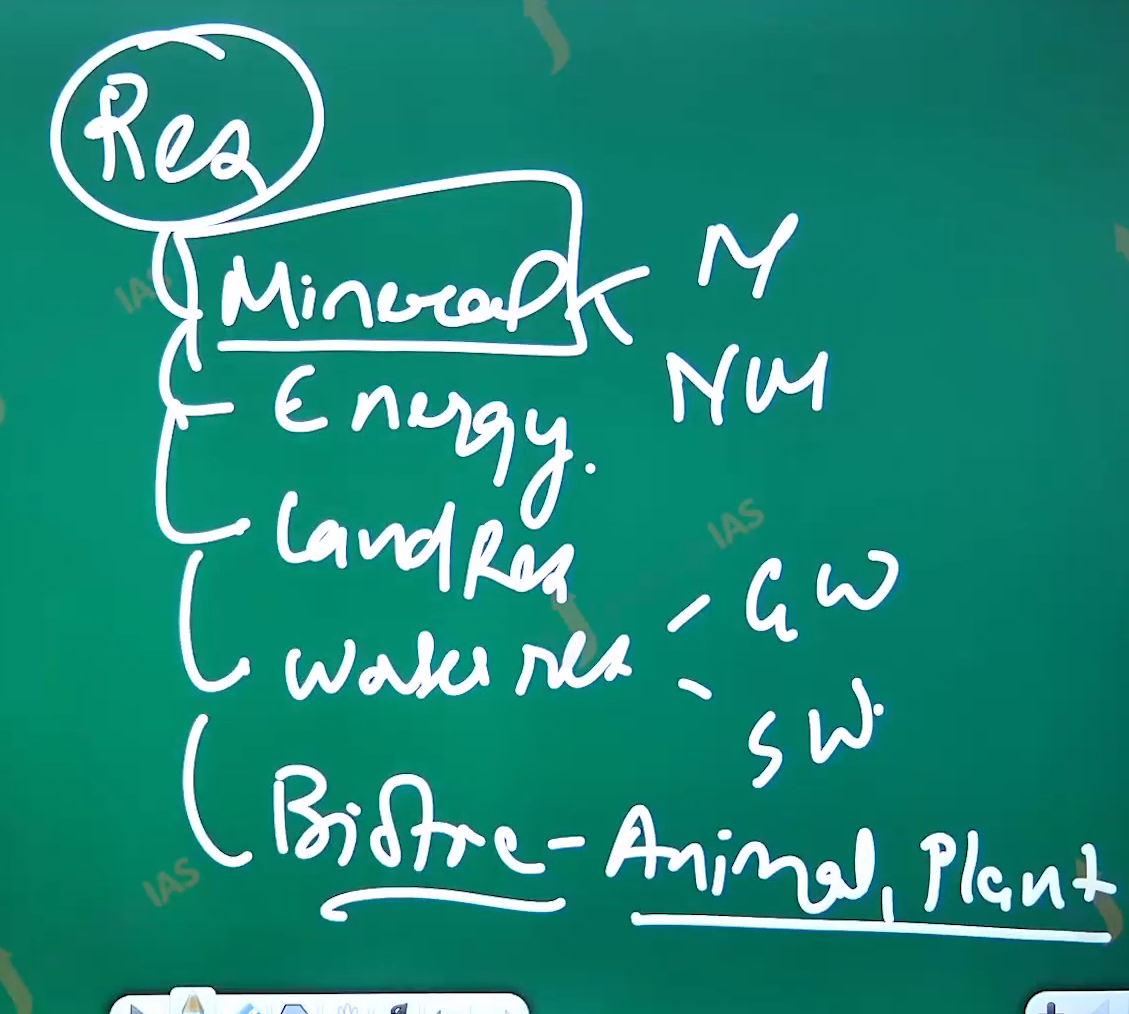 Res
Mineral
M
NM
Energy.
Land Res
Water res
GW
SW.
Biotic - Animal, Plant
IAS
IAS
IAS